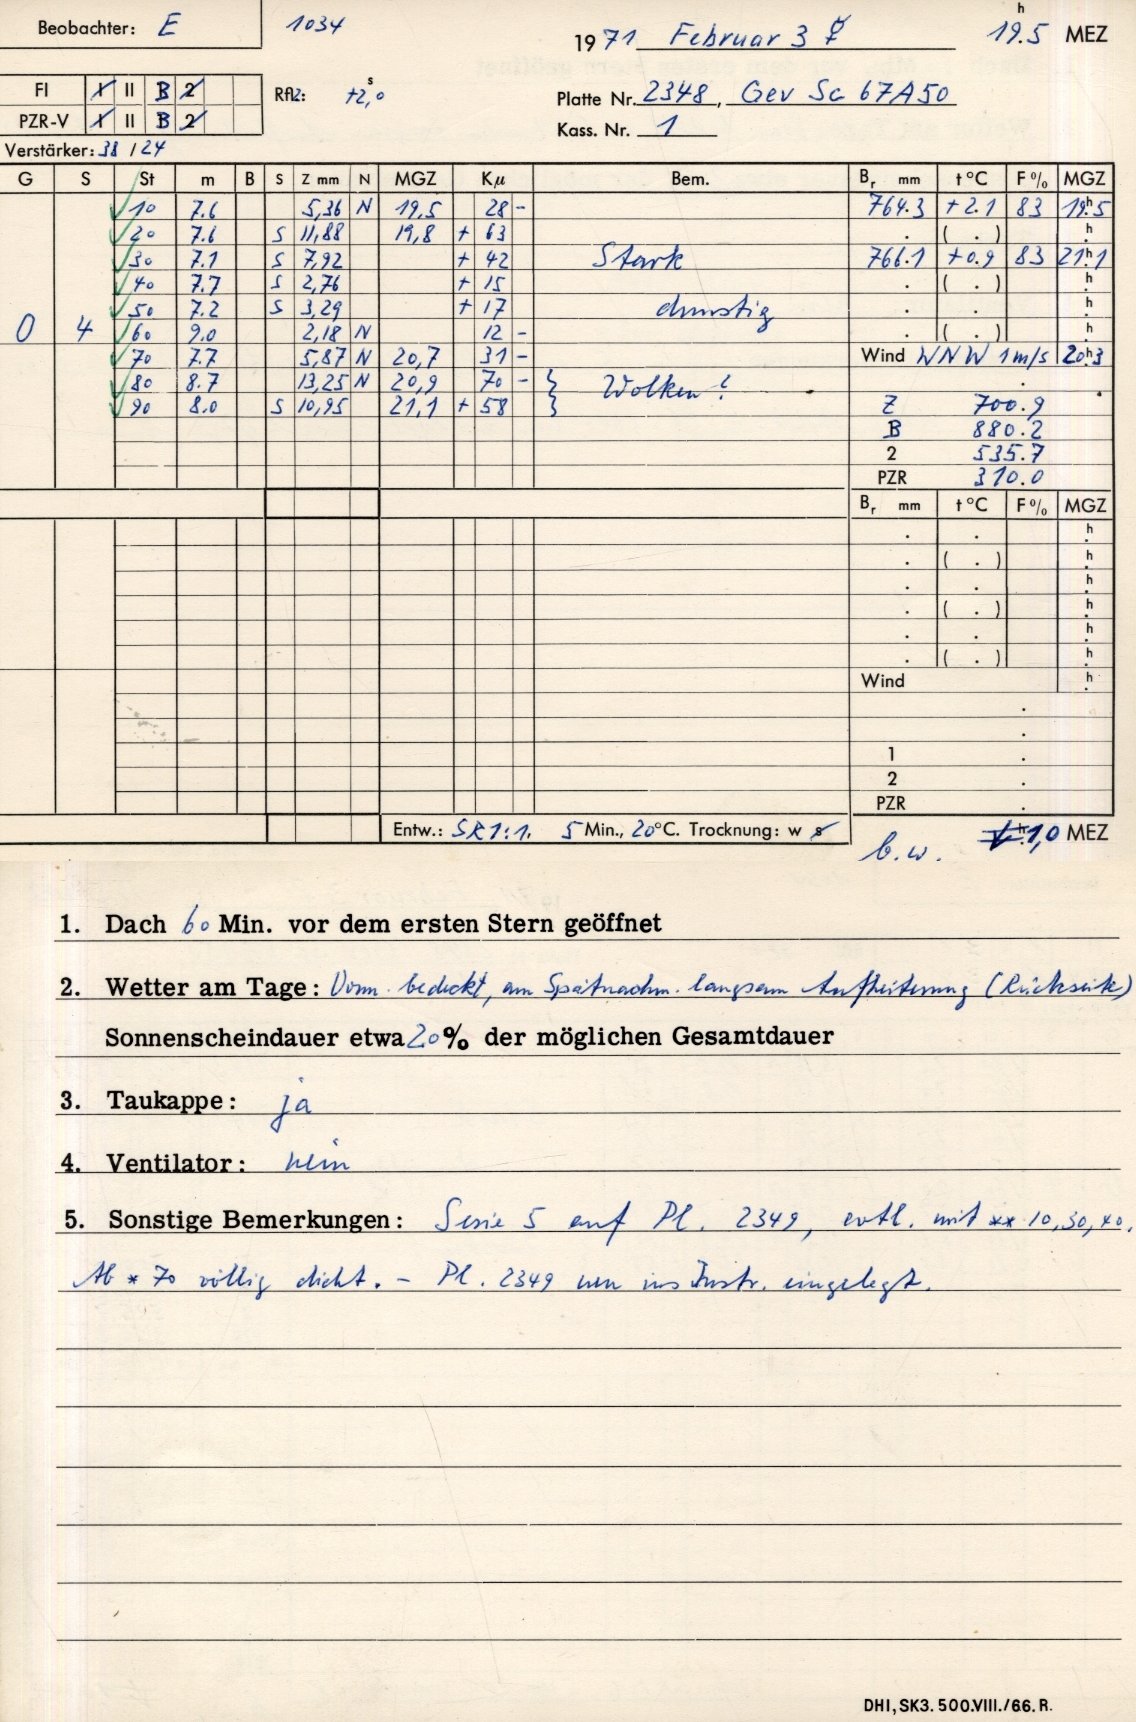 Beobachter: E 1034 1971 Februar 3 ☿ 19h.5 MEZ
FI I II B 2 Rflz: +2s,0 Platte Nr. 2348, Gev Sc 67A50
PZR-V I II B 2 Kass. Nr. 1
Verstärker: 38 / 24
G S St m B S Z mm N MGZ Kμ Bem. Br mm t °C F % MGZ
10 7.6 5,36 N 19,5 28 - 764.3 +2.1 83 19h5
20 7.6 S 11,88 19,8 + 63 . ( . ) h.
30 7.1 S 7,92 + 42 Stark 766.1 +0.9 83 21h1
40 7.7 S 2,76 + 15 . ( . ) h.
50 7.2 S 3,29 + 17 dunstig . . h.
0 4 60 9.0 2,18 N 12 - . ( . ) h.
70 7.7 5,87 N 20,7 31 - Wind WNW 1 m/s 20h3
80 8.7 13,25 N 20,9 70 - } Wolken! .
90 8.0 S 10,95 21,1 + 58 } Z 700.9
B 880.2
2 535.7
PZR 310.0
Br mm t °C F % MGZ
. . h.
. ( . ) h.
. . h.
. ( . ) h.
. . h.
. ( . ) h.
Wind h.
.
.
1 .
2 .
PZR .
Entw.: SR 1:1. 5 Min., 20°C. Trocknung: w s
b.w. 1,0 MEZ
1. Dach 60 Min. vor dem ersten Stern geöffnet
2. Wetter am Tage: Vorm. bedeckt, am Spätnachm. langsam Aufheiterung (Rückseite)
Sonnenscheindauer etwa 20% der möglichen Gesamtdauer
3. Taukappe: ja
4. Ventilator: nein
5. Sonstige Bemerkungen: Serie 5 auf Pl. 2349, evtl. mit ** 10, 30, 40.
Ab * 70 völlig dicht. – Pl. 2349 neu ins Instr. eingelegt.
DHI, SK3. 500. VIII. /66. R.